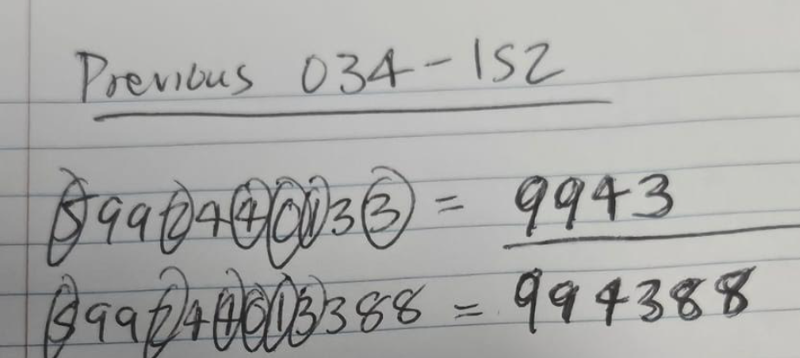 Previous 034-152
5992440133 = 9943
599244013388 = 994388